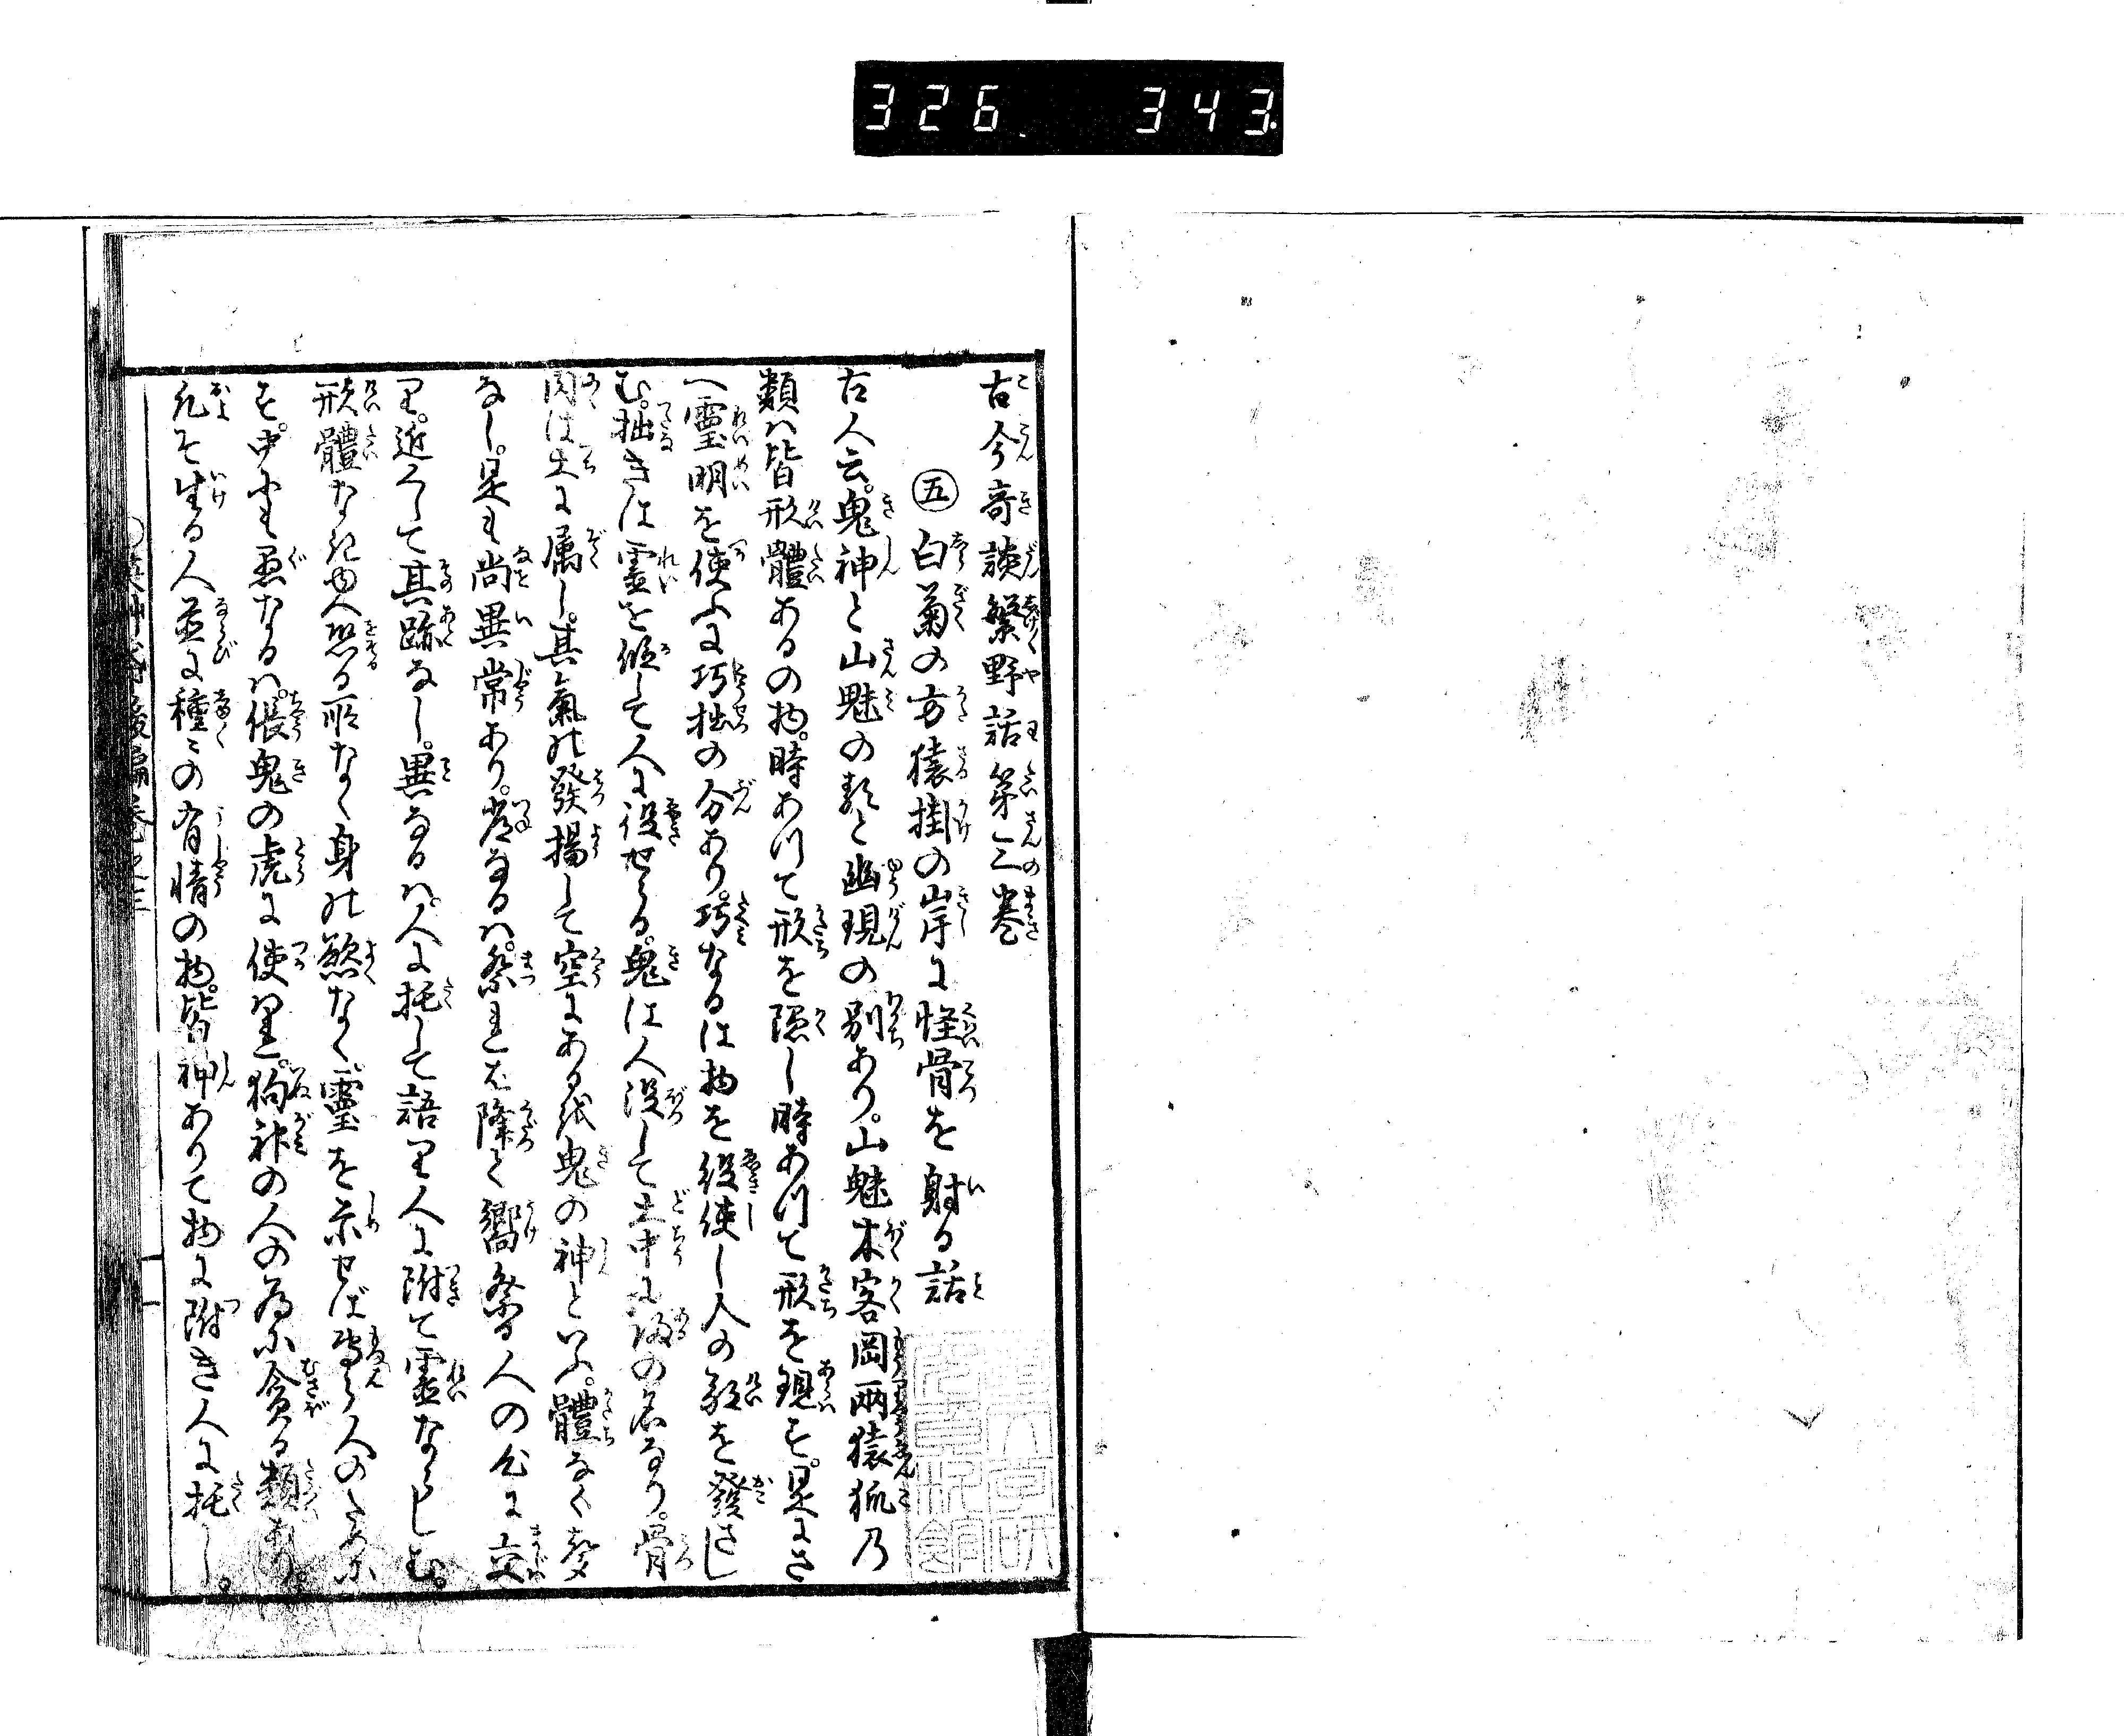 326. 343.
古今奇談繁野話第三巻
五 白菊の方猿掛の岸に怪骨を射る話
古人云。鬼神と山魅の類と幽現の別あり。山魅木客岡両猿狐乃
類ハ皆形體あるの物。時あつて形を隠し時あつて形を現す。是にさ
へ靈明を使ふに巧拙の分あり。巧なるは物を役使し人の類を發さし
む。拙きは靈を
して人に役せらる。鬼は人没して土中に帰の名なり。骨
肉は土に属し。其氣の發揚して空にあるは鬼の神といふ。體なく聲
なし。是も尚異常あり。常なるハ。祭れば降て嚮祭る人の心に交
り。近くして其跡なし。異なるハ。人に托して語り人に附て靈ならしむ。
形體なき物人恐る所なく身の慾なく。靈を示せば
人のために
す。中にも愚なるハ。倀鬼の虎に使れ。狗神の人の為に貪る類あり。
凡そ生る人並に種〻の有情の物。皆神ありて物に附き人に托し。